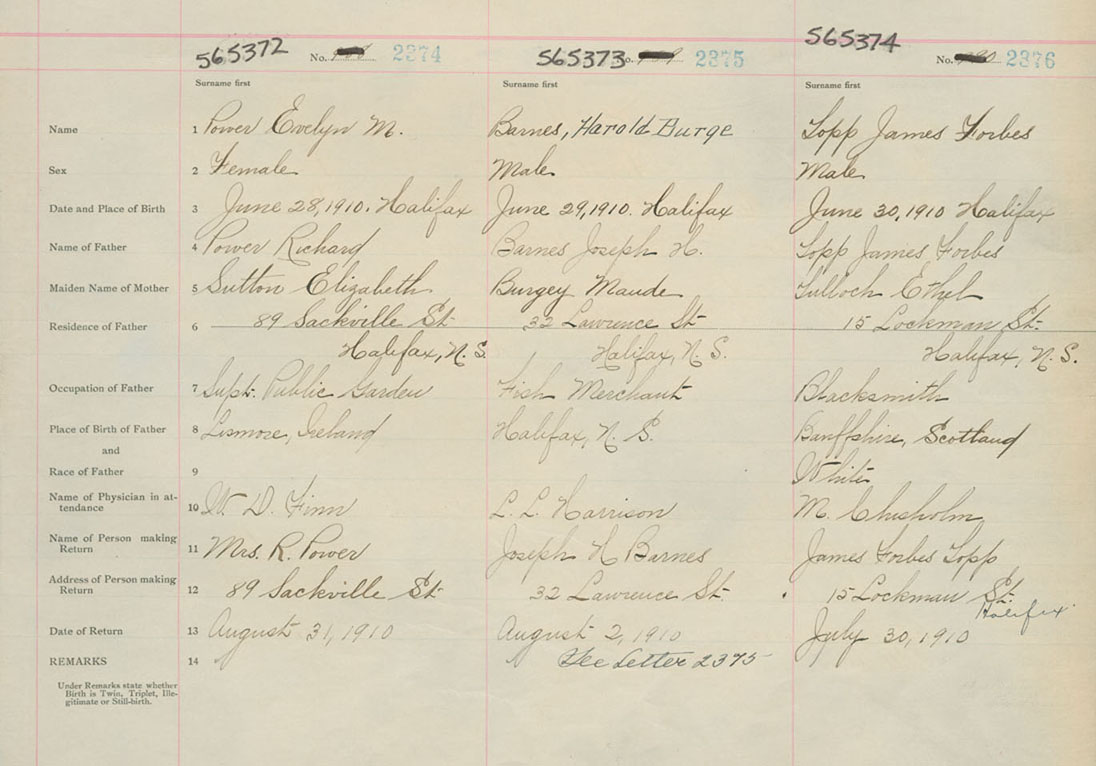 565372 No. 2374 565373 No. 2375 565374 No. 2376
Surname first Surname first Surname first
Name 1 Power Evelyn M. Barnes, Harold Burge Topp James Forbes
Sex 2 Female Male Male
Date and Place of Birth 3 June 28, 1910. Halifax June 29, 1910. Halifax June 30, 1910 Halifax
Name of Father 4 Power Richard Barnes Joseph H. Topp James Forbes
Maiden Name of Mother 5 Sutton Elizabeth Burgey Maude Tulloch Ethel
Residence of Father 6 89 Sackville St. 32 Lawrence St. 15 Lockman St.
Halifax, N. S. Halifax, N. S. Halifax, N. S.
Occupation of Father 7 Supt. Public Garden Fish Merchant Blacksmith
Place of Birth of Father 8 Lismore, Ireland Halifax, N. S. Banffshire, Scotland
and
Race of Father 9 White
Name of Physician in at-
tendance 10 W. D. Finn L. L. Harrison M. Chisholm
Name of Person making
Return 11 Mrs. R. Power Joseph H Barnes James Forbes Topp
Address of Person making
Return 12 89 Sackville St. 32 Lawrence St. 15 Lockman St.
Halifax
Date of Return 13 August 31, 1910 August 2, 1910 July 30, 1910
REMARKS 14 See Letter 2375
Under Remarks state whether
Birth is Twin, Triplet, Ille-
gitimate or Still-birth.